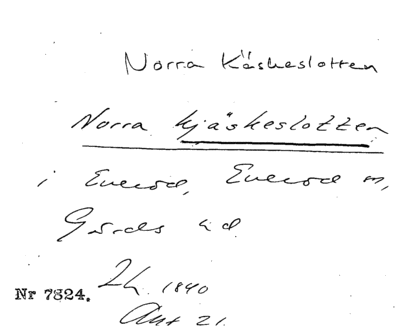 Norra Käskeslotten
Norra Kjäskeslotten
i Everöd, Everöd sn,
Gärds hd.
Lh. 1840
Nr 7824.
Akt 21.